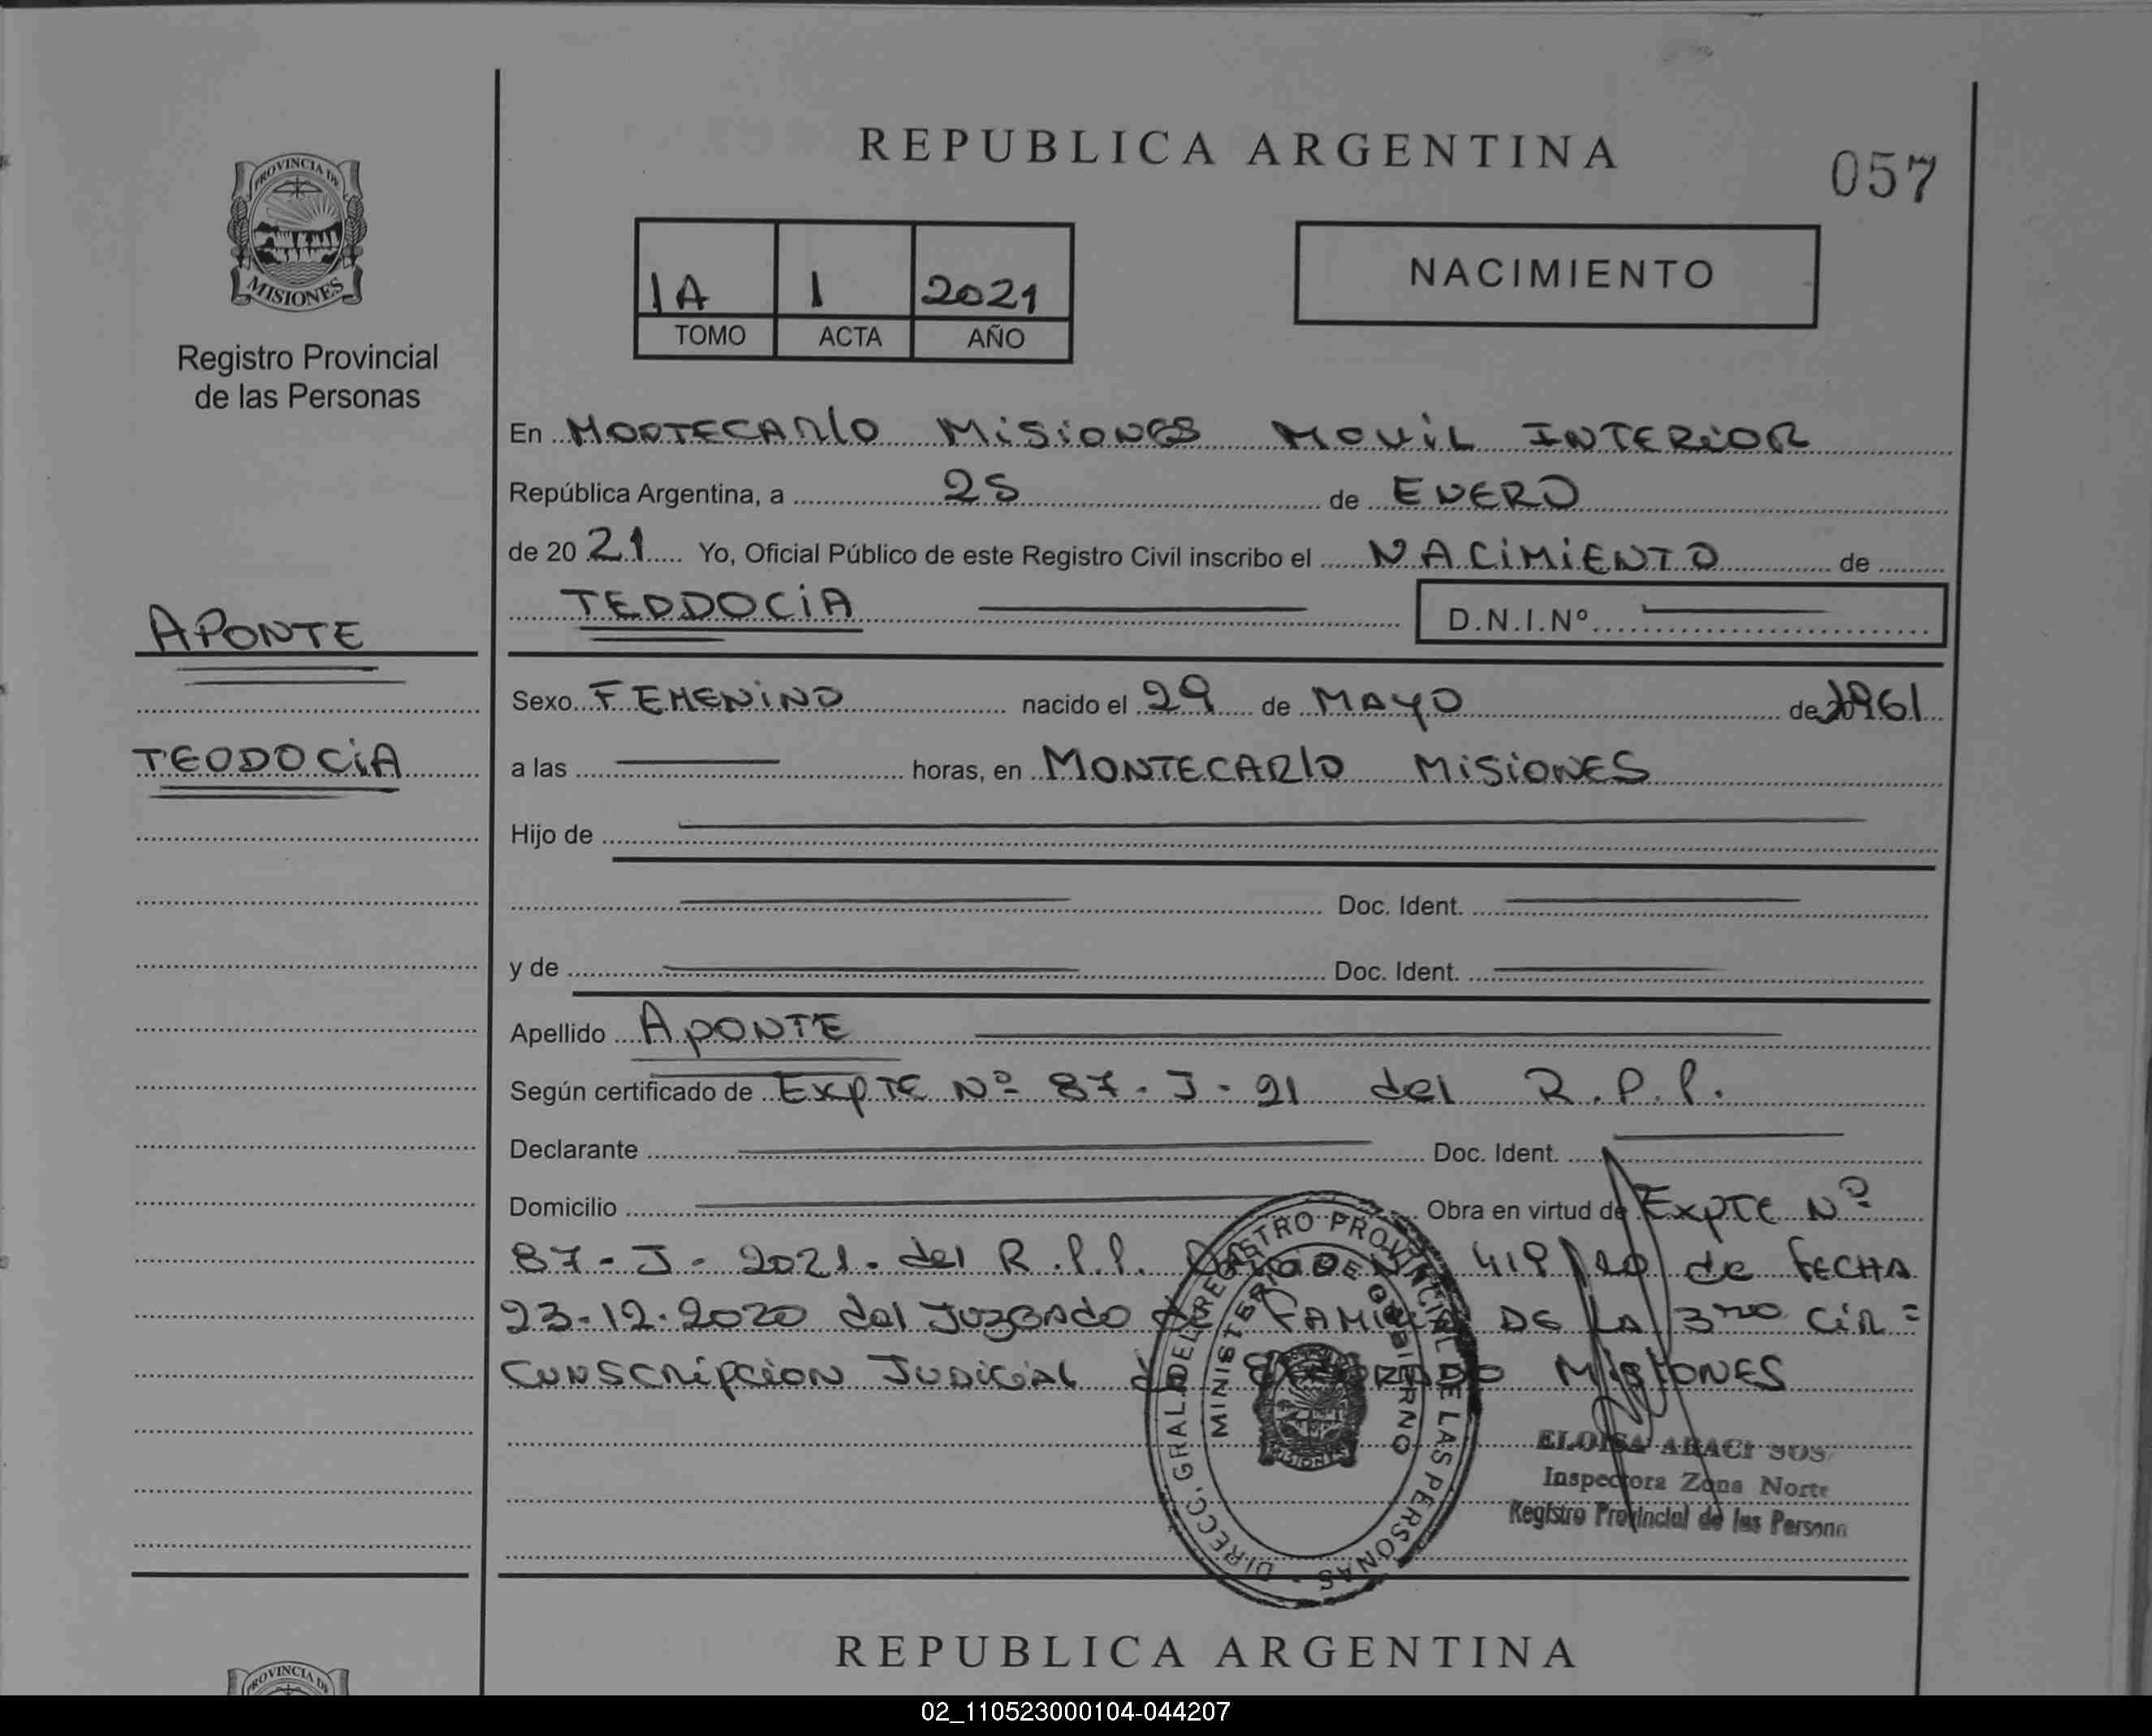 REPUBLICA ARGENTINA
057
PROVINCIA DE
MISIONES
Registro Provincial
de las Personas
1A 1 2021
TOMO ACTA AÑO
NACIMIENTO
En MONTECARLO MISIONES MOVIL INTERIOR
República Argentina, a 25 de ENERO
de 20 21 Yo, Oficial Público de este Registro Civil inscribo el NACIMIENTO de
TEODOCIA D.N.I.Nº
APONTE
Sexo FEMENINO nacido el 29 de MAYO de 1961
TEODOCIA
a las horas, en MONTECARLO MISIONES
Hijo de
Doc. Ident.
y de Doc. Ident.
Apellido APONTE
Según certificado de EXPTE Nº 87-J-21 del R.P.P.
Declarante Doc. Ident.
Domicilio Obra en virtud de EXPTE Nº
87-J-2021. del R.P.P. de FECHA
23-12-2020 del JUZGADO de FAMILIA DE LA 3RO CIR=
CUNSCRIPCION JUDICIAL de MISIONES
DIRECC. GRAL. DEL REGISTRO PROVINCIAL DE LAS PERSONAS
MINISTERIO DE GOBIERNO
ELOISA ARACI
Inspectora Zona Norte
Registro Provincial de las Persona
REPUBLICA ARGENTINA
PROVINCIA DE
02_110523000104-044207